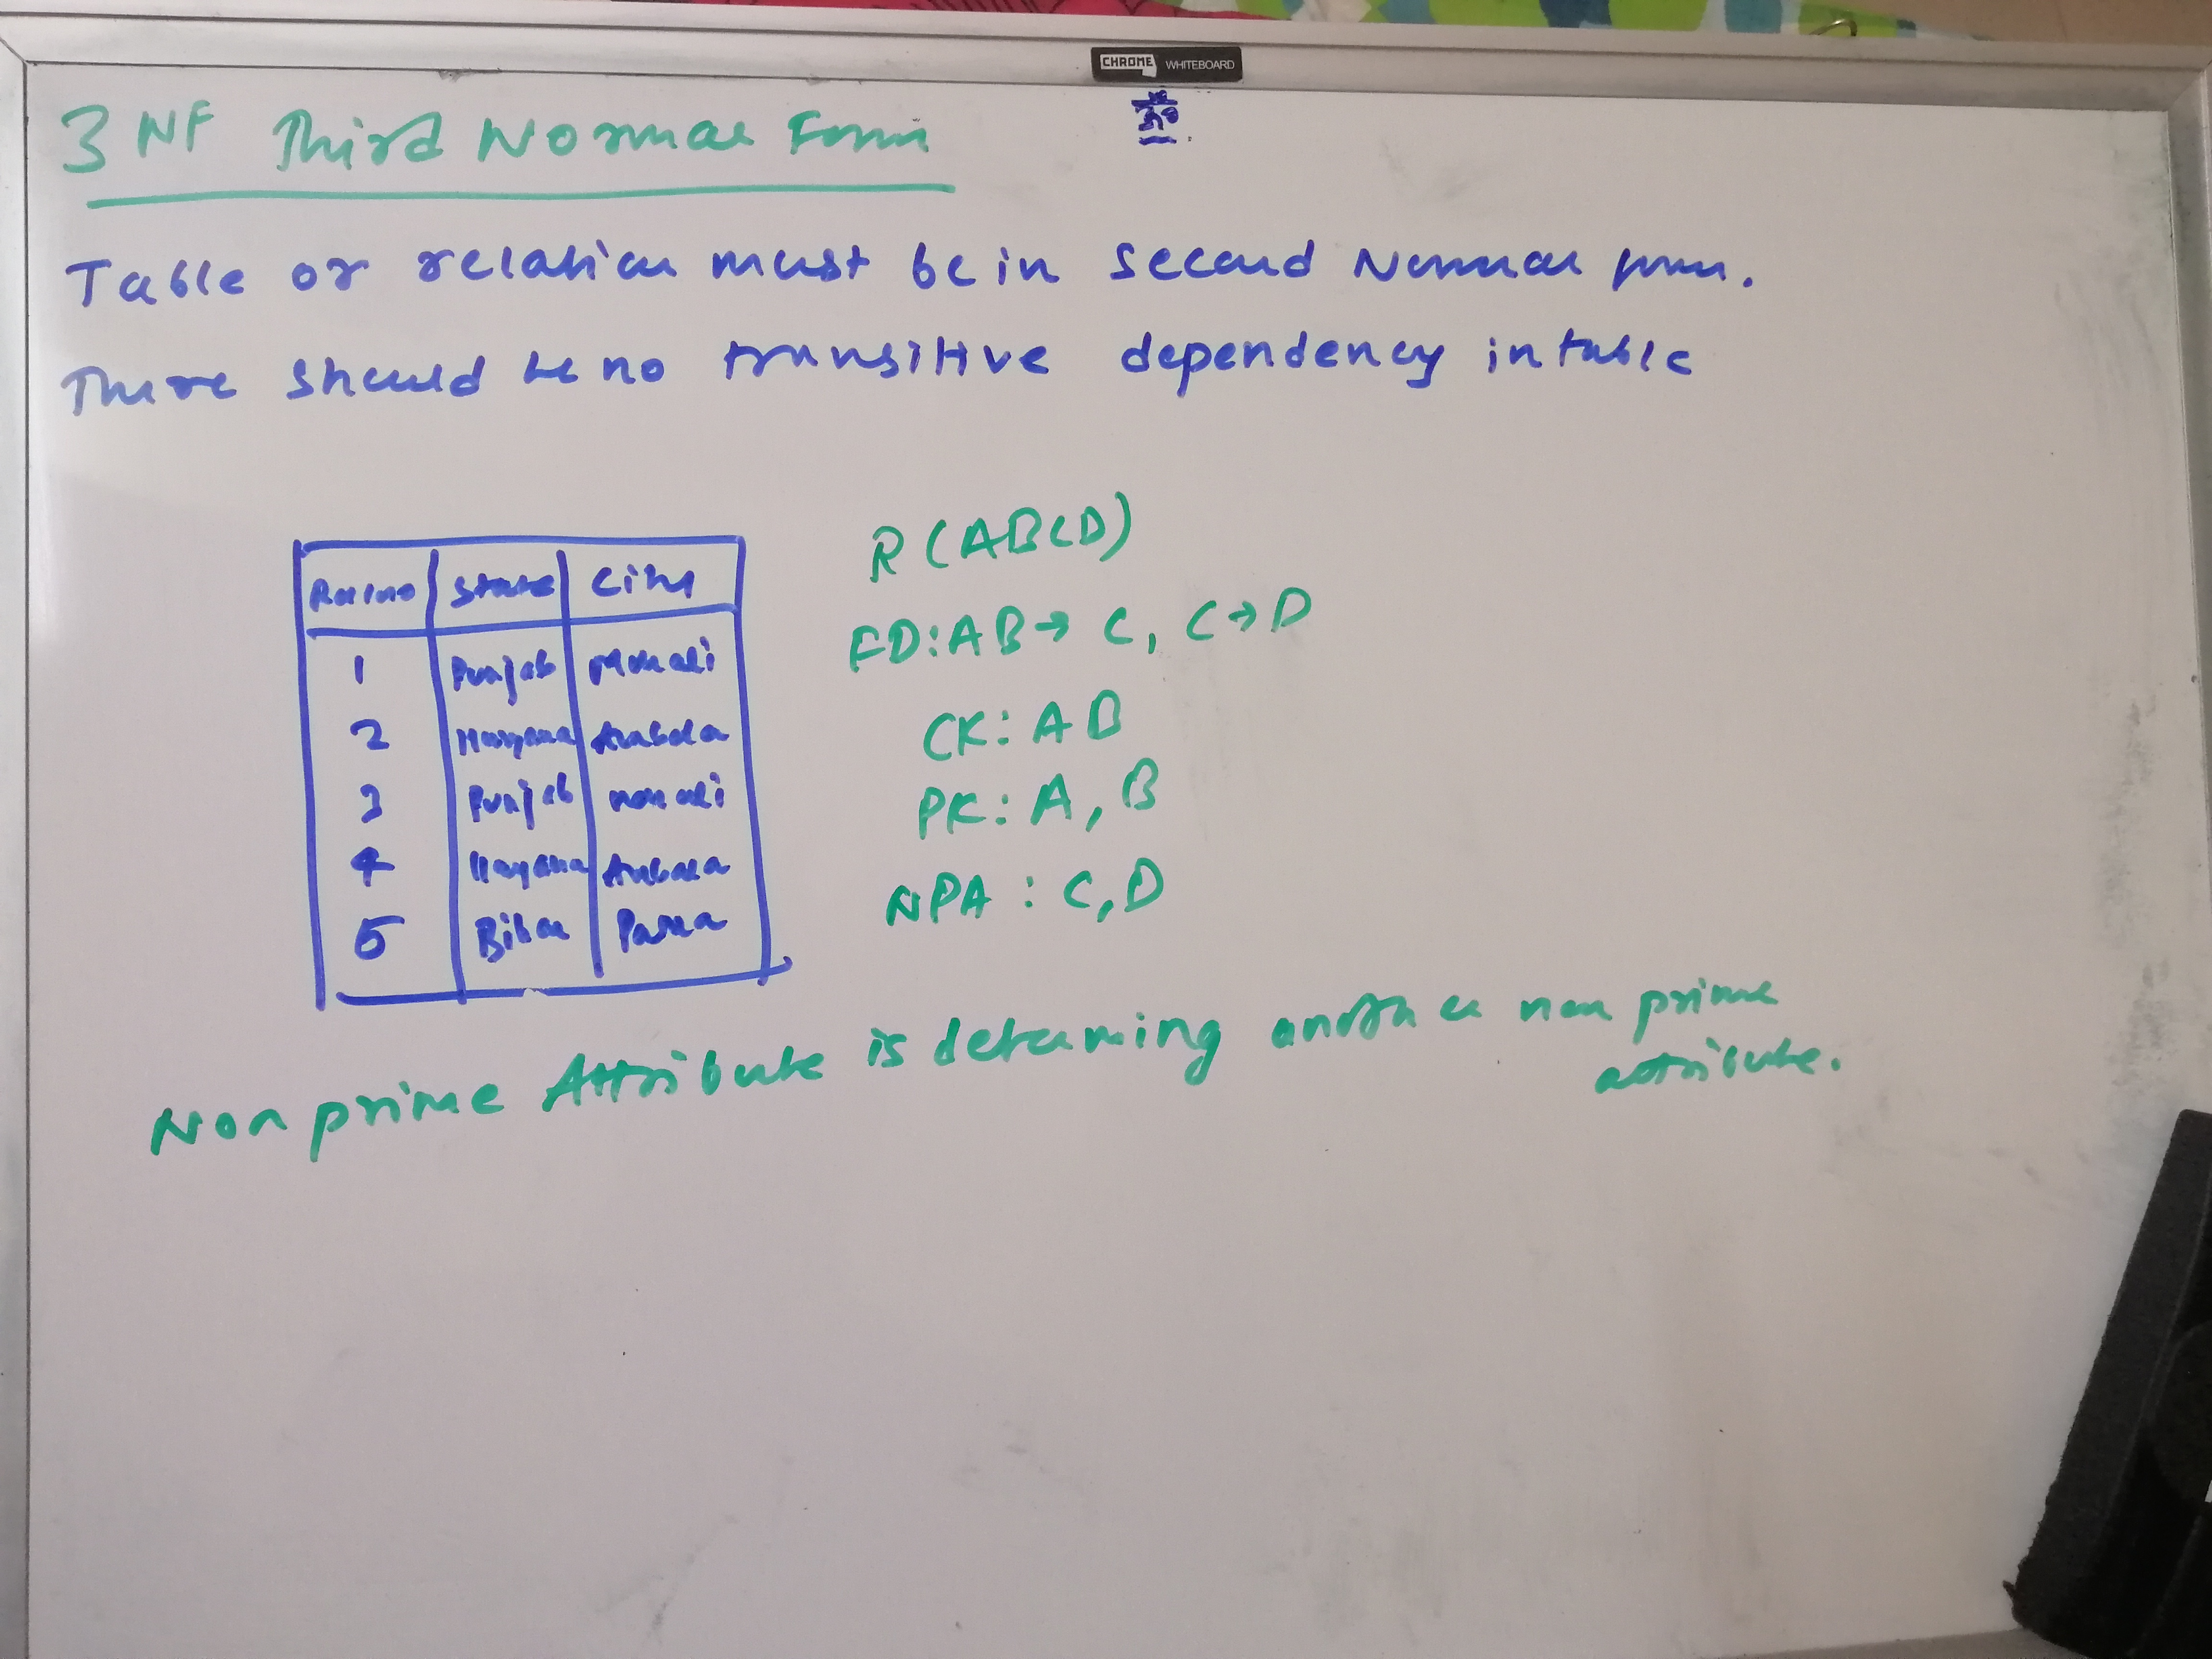 CHROME WHITEBOARD
3 NF Third Normal Form
Table or relation must be in Second Normal form.
There should be no transitive dependency in table
Rollno State City
1 Punjab Mohali
2 Haryana Ambala
3 Punjab mohali
4 Haryana Ambala
5 Bihar Patna
R (ABCD)
FD: AB → C, C → D
CK: AB
PK: A, B
NPA : C, D
Non prime Attribute is determing another non prime
attribute.